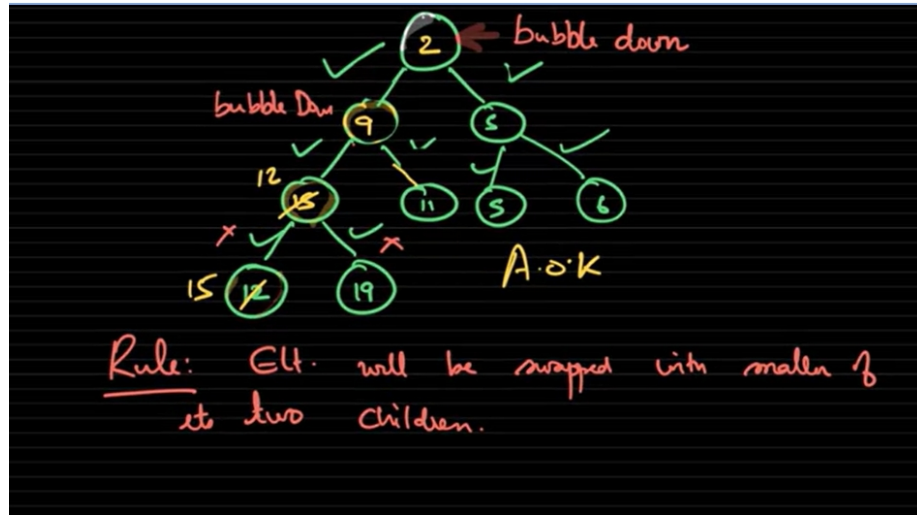 2 bubble down
bubble Down
9 5
12
15 11 5 6
x x
15 12 19 A.O.K
Rule: Elt. will be swapped with smaller of
its two children.